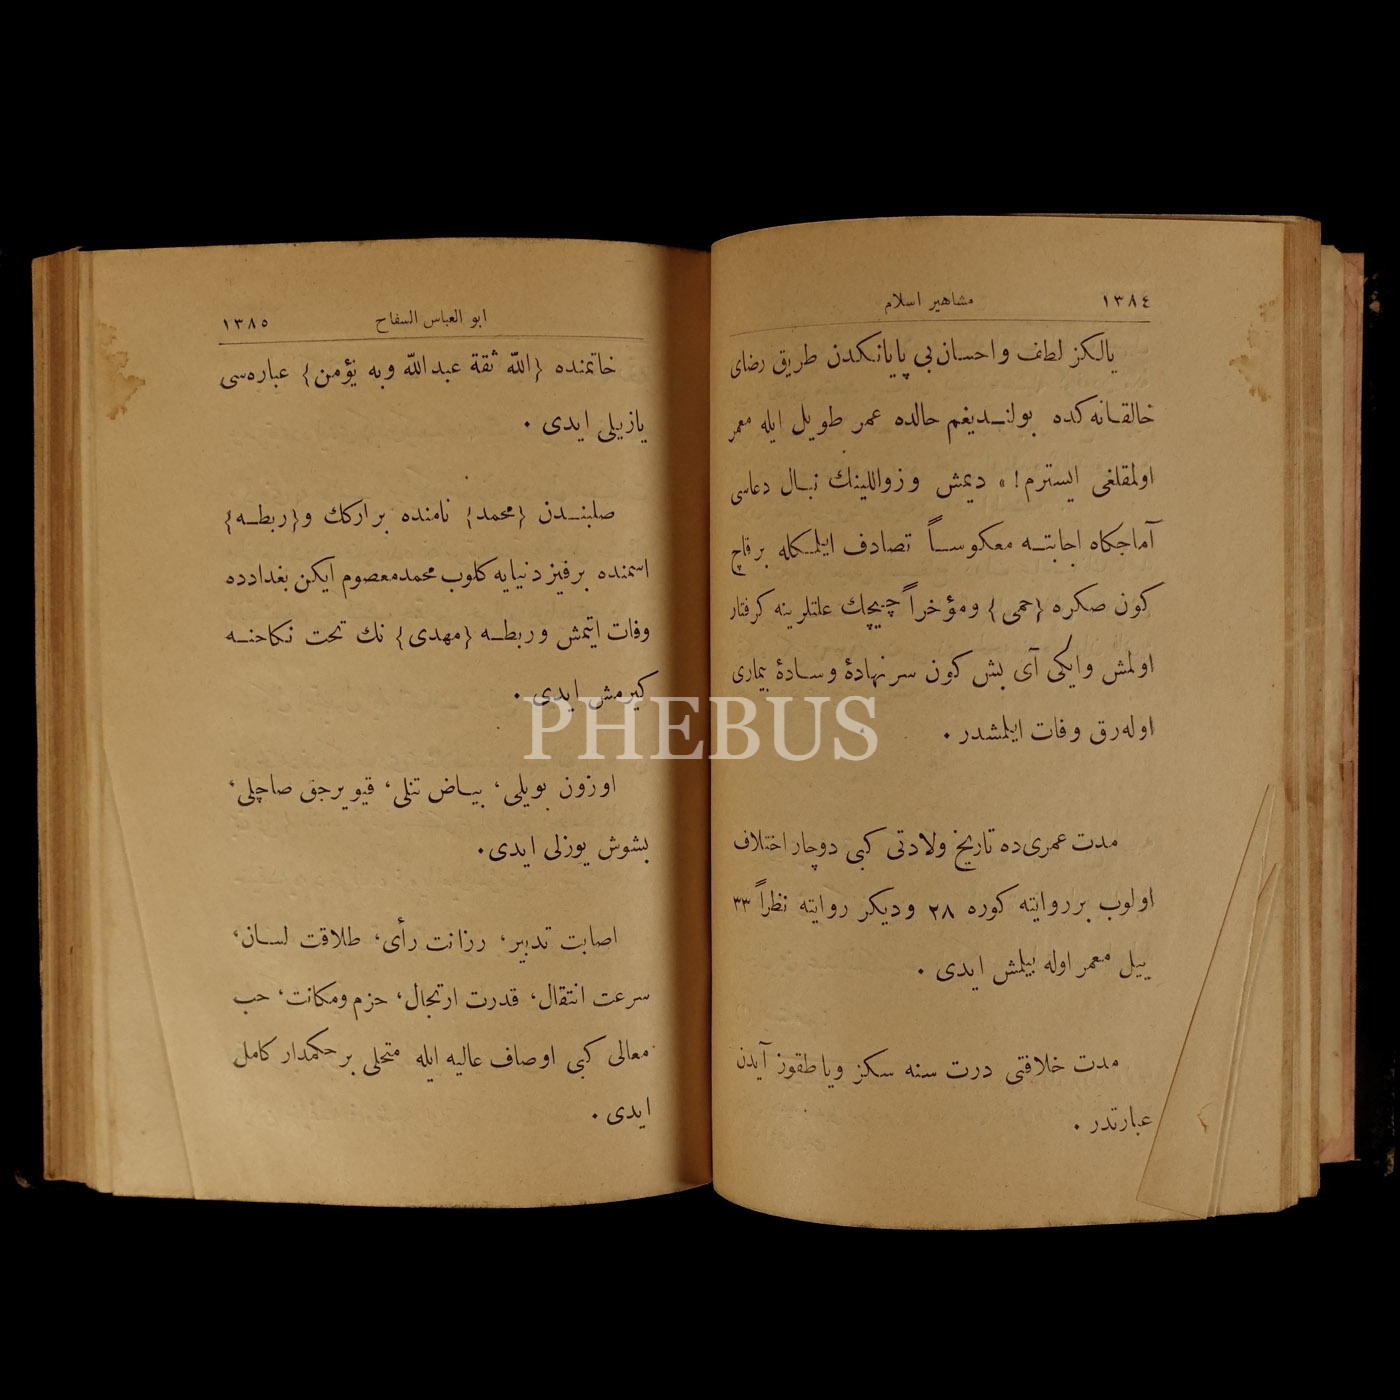 ١٣٨٤
مشاهير اسلام
يالكز لطف واحسان‌بی پايانكدن طريق رضای
خالقانه‌كده بولنديغم حالده عمر طويل ايله معمر
اولمقلغی ايسترم! » ديمش وزواللينك نبال دعاسی
آماجكاه اجابته معكوساً تصادف ايلمكله برقاچ
كون صكره {حمی} ومؤخراً چيچك علتلرينه كرفتار
اولمش وايكی آی بش كون سرنهادهٔ وسادهٔ بيماری
اوله‌رق وفات ايلمشدر .
مدت عمری‌ده تاريخ ولادتی كبی دوچار اختلاف
اولوب برروايته كوره ٢٨ وديكر روايته نظراً ٣٣
ييل معمر اوله بيلمش ايدی .
مدت خلافتی درت سنه سكز وياطقوز آيدن
عبارتدر .
ابو العباس السفاح
١٣٨٥
خاتمنده {اللّه ثقة عبداللّه وبه يؤمن} عباره‌سی
يازيلی ايدی .
صلبندن {محمد} نامنده براركك و{ربطه}
اسمنده برقيز دنيايه كلوب محمدمعصوم ايكن بغدادده
وفات ايتمش وربطه {مهدی} نك تحت نكاحنه
كيرمش ايدی .
اوزون بويلی، بياض تنلی، قيويرجق صاچلی،
بشوش يوزلی ايدی.
اصابت تدبير، رزانت رأی، طلاقت لسان،
سرعت انتقال، قدرت ارتجال، حزم ومكانت، حب
معالی كبی اوصاف عاليه ايله متحلی برحكمدار كامل
ايدی .
PHEBUS